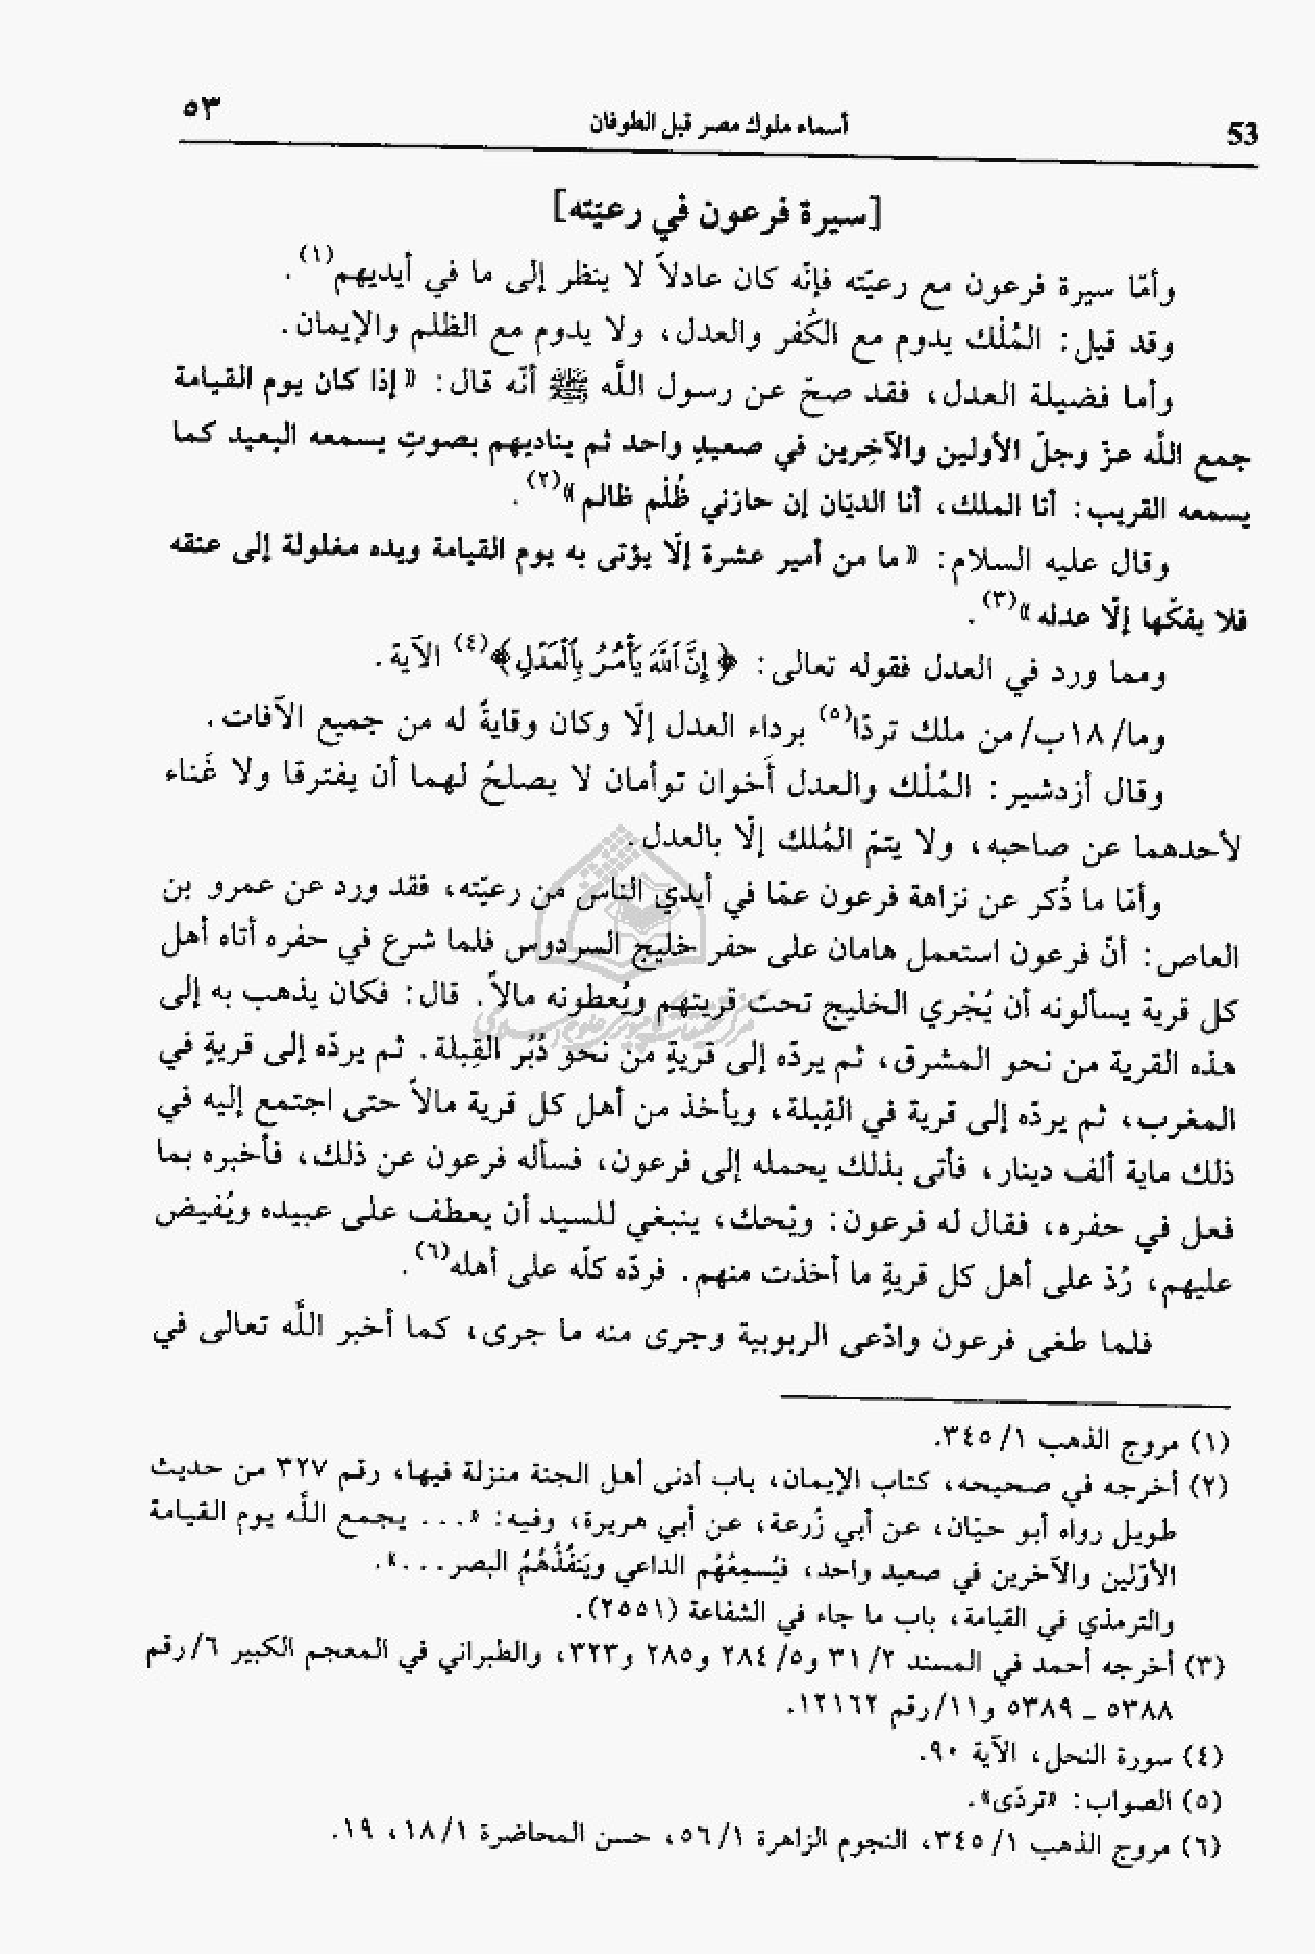 ٥٣
أسماء ملوك مصر قبل الطوفان
53
[سيرة فرعون في رعيّته]
وأمّا سيرة فرعون مع رعيّته فإنّه كان عادلاً لا ينظر إلى ما في أيديهم(١).
وقد قيل: المُلْك يدوم مع الكُفر والعدل، ولا يدوم مع الظلم والإيمان.
وأما فضيلة العدل، فقد صحّ عن رسول اللَّه ﷺ أنّه قال: «إذا كان يوم القيامة
جمع اللَّه عزّ وجلّ الأولين والآخِرين في صعيدٍ واحد ثم يناديهم بصوتٍ يسمعه البعيد كما
يسمعه القريب: أنا الملك، أنا الديّان إن حازني ظُلْم ظالم»(٢).
وقال عليه السلام: «ما من أمير عشرة إلّا يؤتى به يوم القيامة ويده مغلولة إلى عنقه
فلا يفكّها إلّا عدله»(٣).
ومما ورد في العدل فقوله تعالى: ﴿إِنَّ ٱللَّهَ يَأْمُرُ بِٱلْعَدْلِ﴾(٤) الآية.
وما/١٨ب/من ملك تردّا(٥) برداء العدل إلّا وكان وقايةً له من جميع الآفات.
وقال أزدشير: المُلْك والعدل أَخوان توأمان لا يصلحُ لهما أن يفترقا ولا غَناء
لأحدهما عن صاحبه، ولا يتمّ المُلك إلّا بالعدل.
وأمّا ما ذُكر عن نزاهة فرعون عمّا في أيدي الناس من رعيّته، فقد ورد عن عمرو بن
العاص: أنّ فرعون استعمل هامان على حفر خليج السردوس فلما شرع في حفره أتاه أهل
كل قرية يسألونه أن يُجْري الخليج تحت قريتهم ويُعطونه مالاً. قال: فكان يذهب به إلى
هذه القرية من نحو المشرق، ثم يردّه إلى قريةٍ من نحو دُبُر القِبلة. ثم يردّه إلى قريةٍ في
المغرب، ثم يردّه إلى قرية في القِبلة، ويأخذ من أهل كل قرية مالاً حتى اجتمع إليه في
ذلك ماية ألف دينار، فأتى بذلك يحمله إلى فرعون، فسأله فرعون عن ذلك، فأخبره بما
فعل في حفره، فقال له فرعون: ويْحك، ينبغي للسيد أن يعطف على عبيده ويُفيض
عليهم، رُدّ على أهل كل قريةٍ ما أخذت منهم. فردّه كلّه على أهله(٦).
فلما طغى فرعون وادّعى الربوبية وجرى منه ما جرى، كما أخبر اللَّه تعالى في
(١) مروج الذهب ١/ ٣٤٥.
(٢) أخرجه في صحيحه، كتاب الإيمان، باب أدنى أهل الجنة منزلة فيها، رقم ٣٢٧ من حديث
طويل رواه أبو حيّان، عن أبي زُرعة، عن أبي هريرة، وفيه: «... يجمع اللَّه يوم القيامة
الأوّلين والآخرين في صعيد واحد، فيُسمِعُهُم الداعي ويَنفُذُهُمُ البصر...».
والترمذي في القيامة، باب ما جاء في الشفاعة (٢٥٥١).
(٣) أخرجه أحمد في المسند ٢/ ٣١ و٥/ ٢٨٤ و٢٨٥ و٣٢٣، والطبراني في المعجم الكبير ٦/رقم
٥٣٨٨ ـ ٥٣٨٩ و١١/رقم ١٢١٦٢.
(٤) سورة النحل، الآية ٩٠.
(٥) الصواب: «تردّى».
(٦) مروج الذهب ١/ ٣٤٥، النجوم الزاهرة ١/ ٥٦، حسن المحاضرة ١/ ١٨، ١٩.